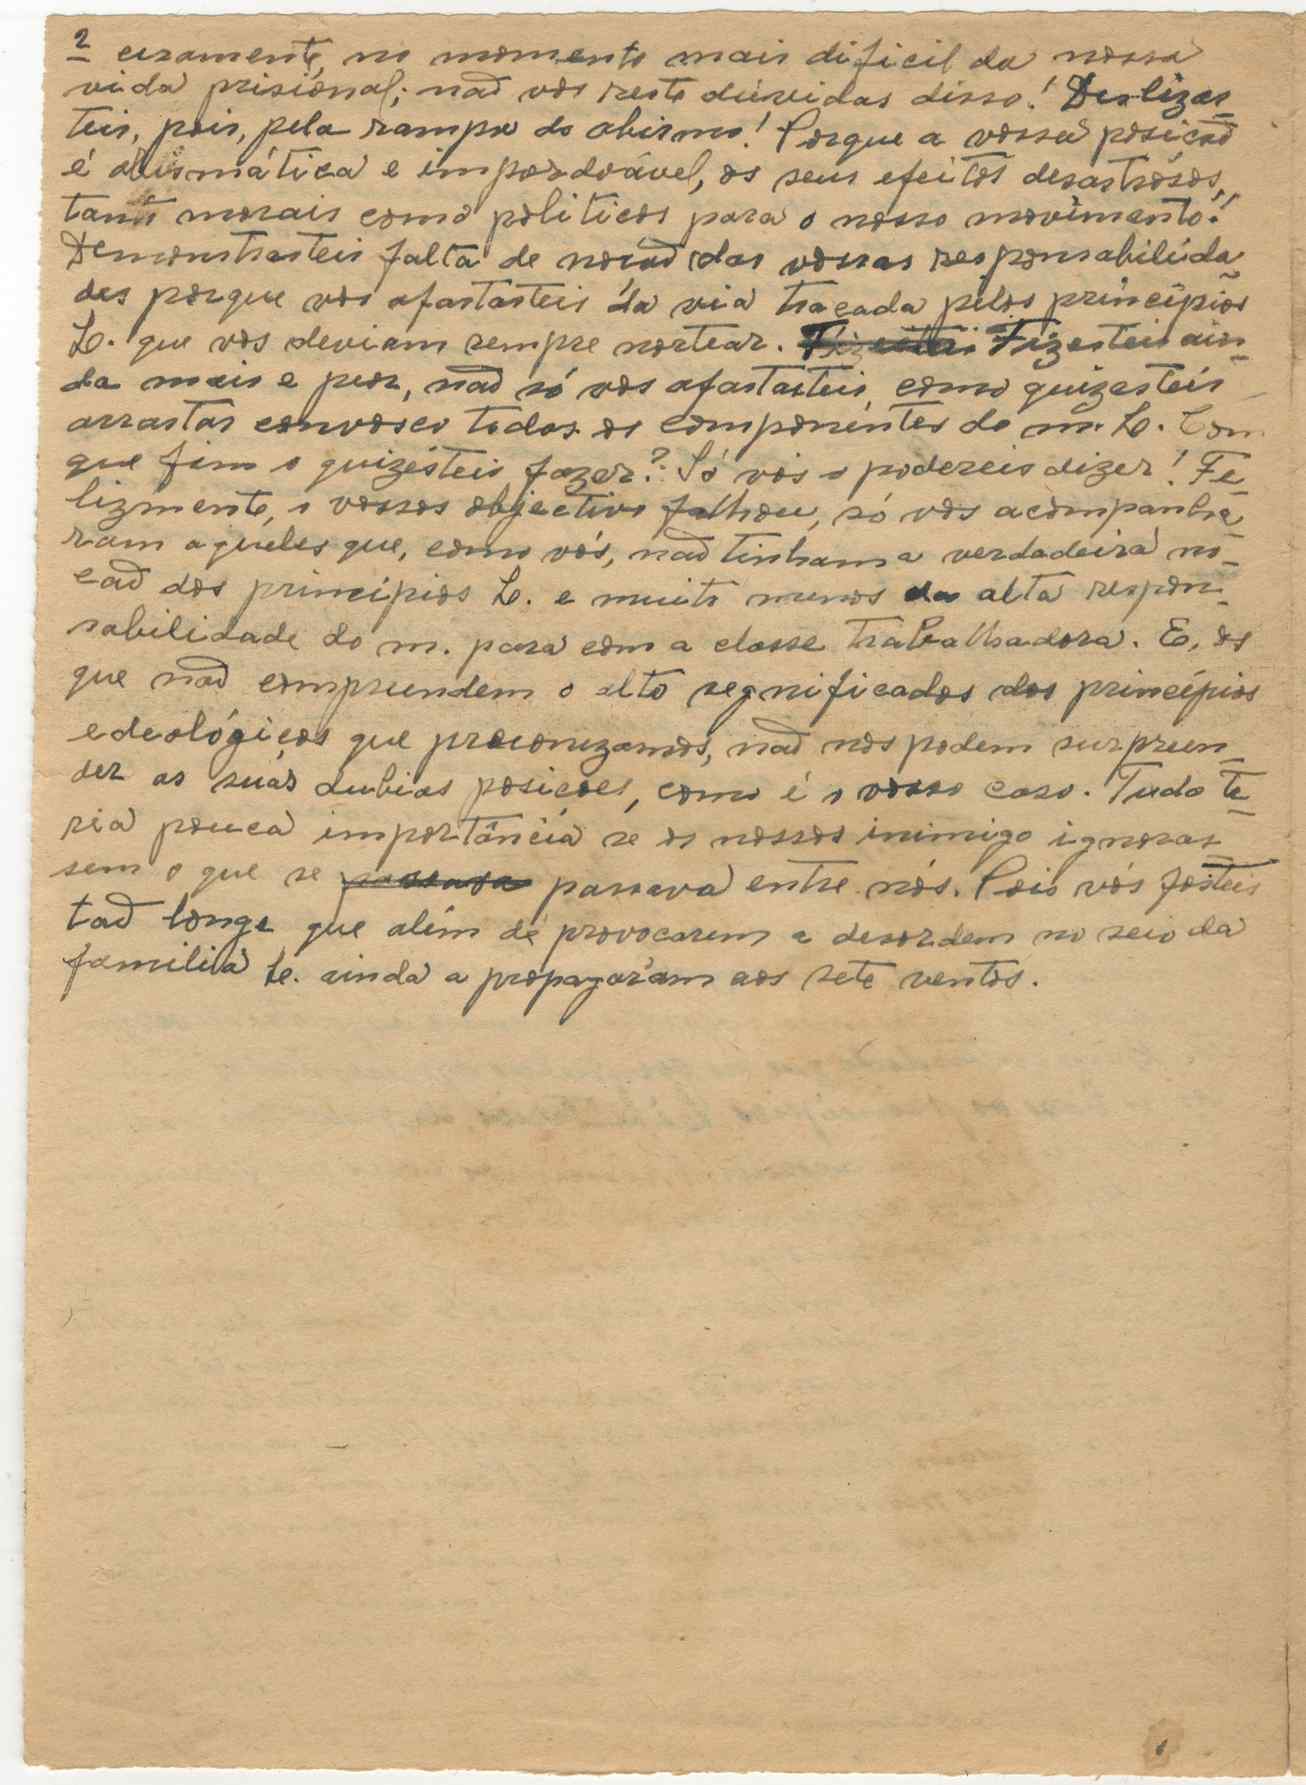 2
cisamente, no momento mais dificil da nossa
vida prisional; não vos reste dúvidas disso! Deslizas-
teis, pois, pela rampa do abismo! Porque a vossa posicão
é abismática e imperdoável, os seus efeitos desastrósos,
tanto morais como politicos para o nosso movimento!
Demonstrasteis falta de nocão das vossas responsabilida
des porque vos afastásteis da via traçada pelos princípios
L. que vos deviam sempre nortear. Fizesteis ain-
da mais e peor, não só vos afastasteis, como quizesteis
arrastar convosco todos os componentes do m. L. Com
que fim o quizésteis fazer? Só vós o podereis dizer! Fe-
lizmente, o vossos objectivo falhou, só vos acompanha
ram aqueles que, como vós, não tinham a verdadeira no-
cão dos princípios L. e muito menos da alta respon-
sabilidade do m. para com a classe trabalhadora. E, os
que não compreendem o alto segnificados dos princépios
edeológicos que preconizamos, não nos podem surpreen-
der as suas dubias posicoes, como é o vosso caso. Tudo te-
ria pouca importância se os nossos inimigo ignoras-
sem o que se passava passava entre nós. Pois vós fosteis
tão longe que além de provocarem a desordem no seio da
familia L. ainda a propagaram aos sete ventos.